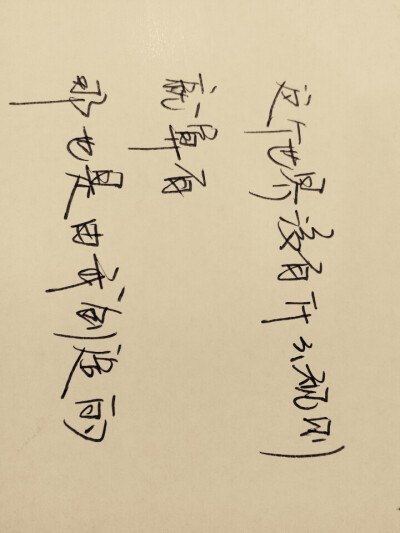 这个世界没有什么规则
就算有
那也是由我创造的